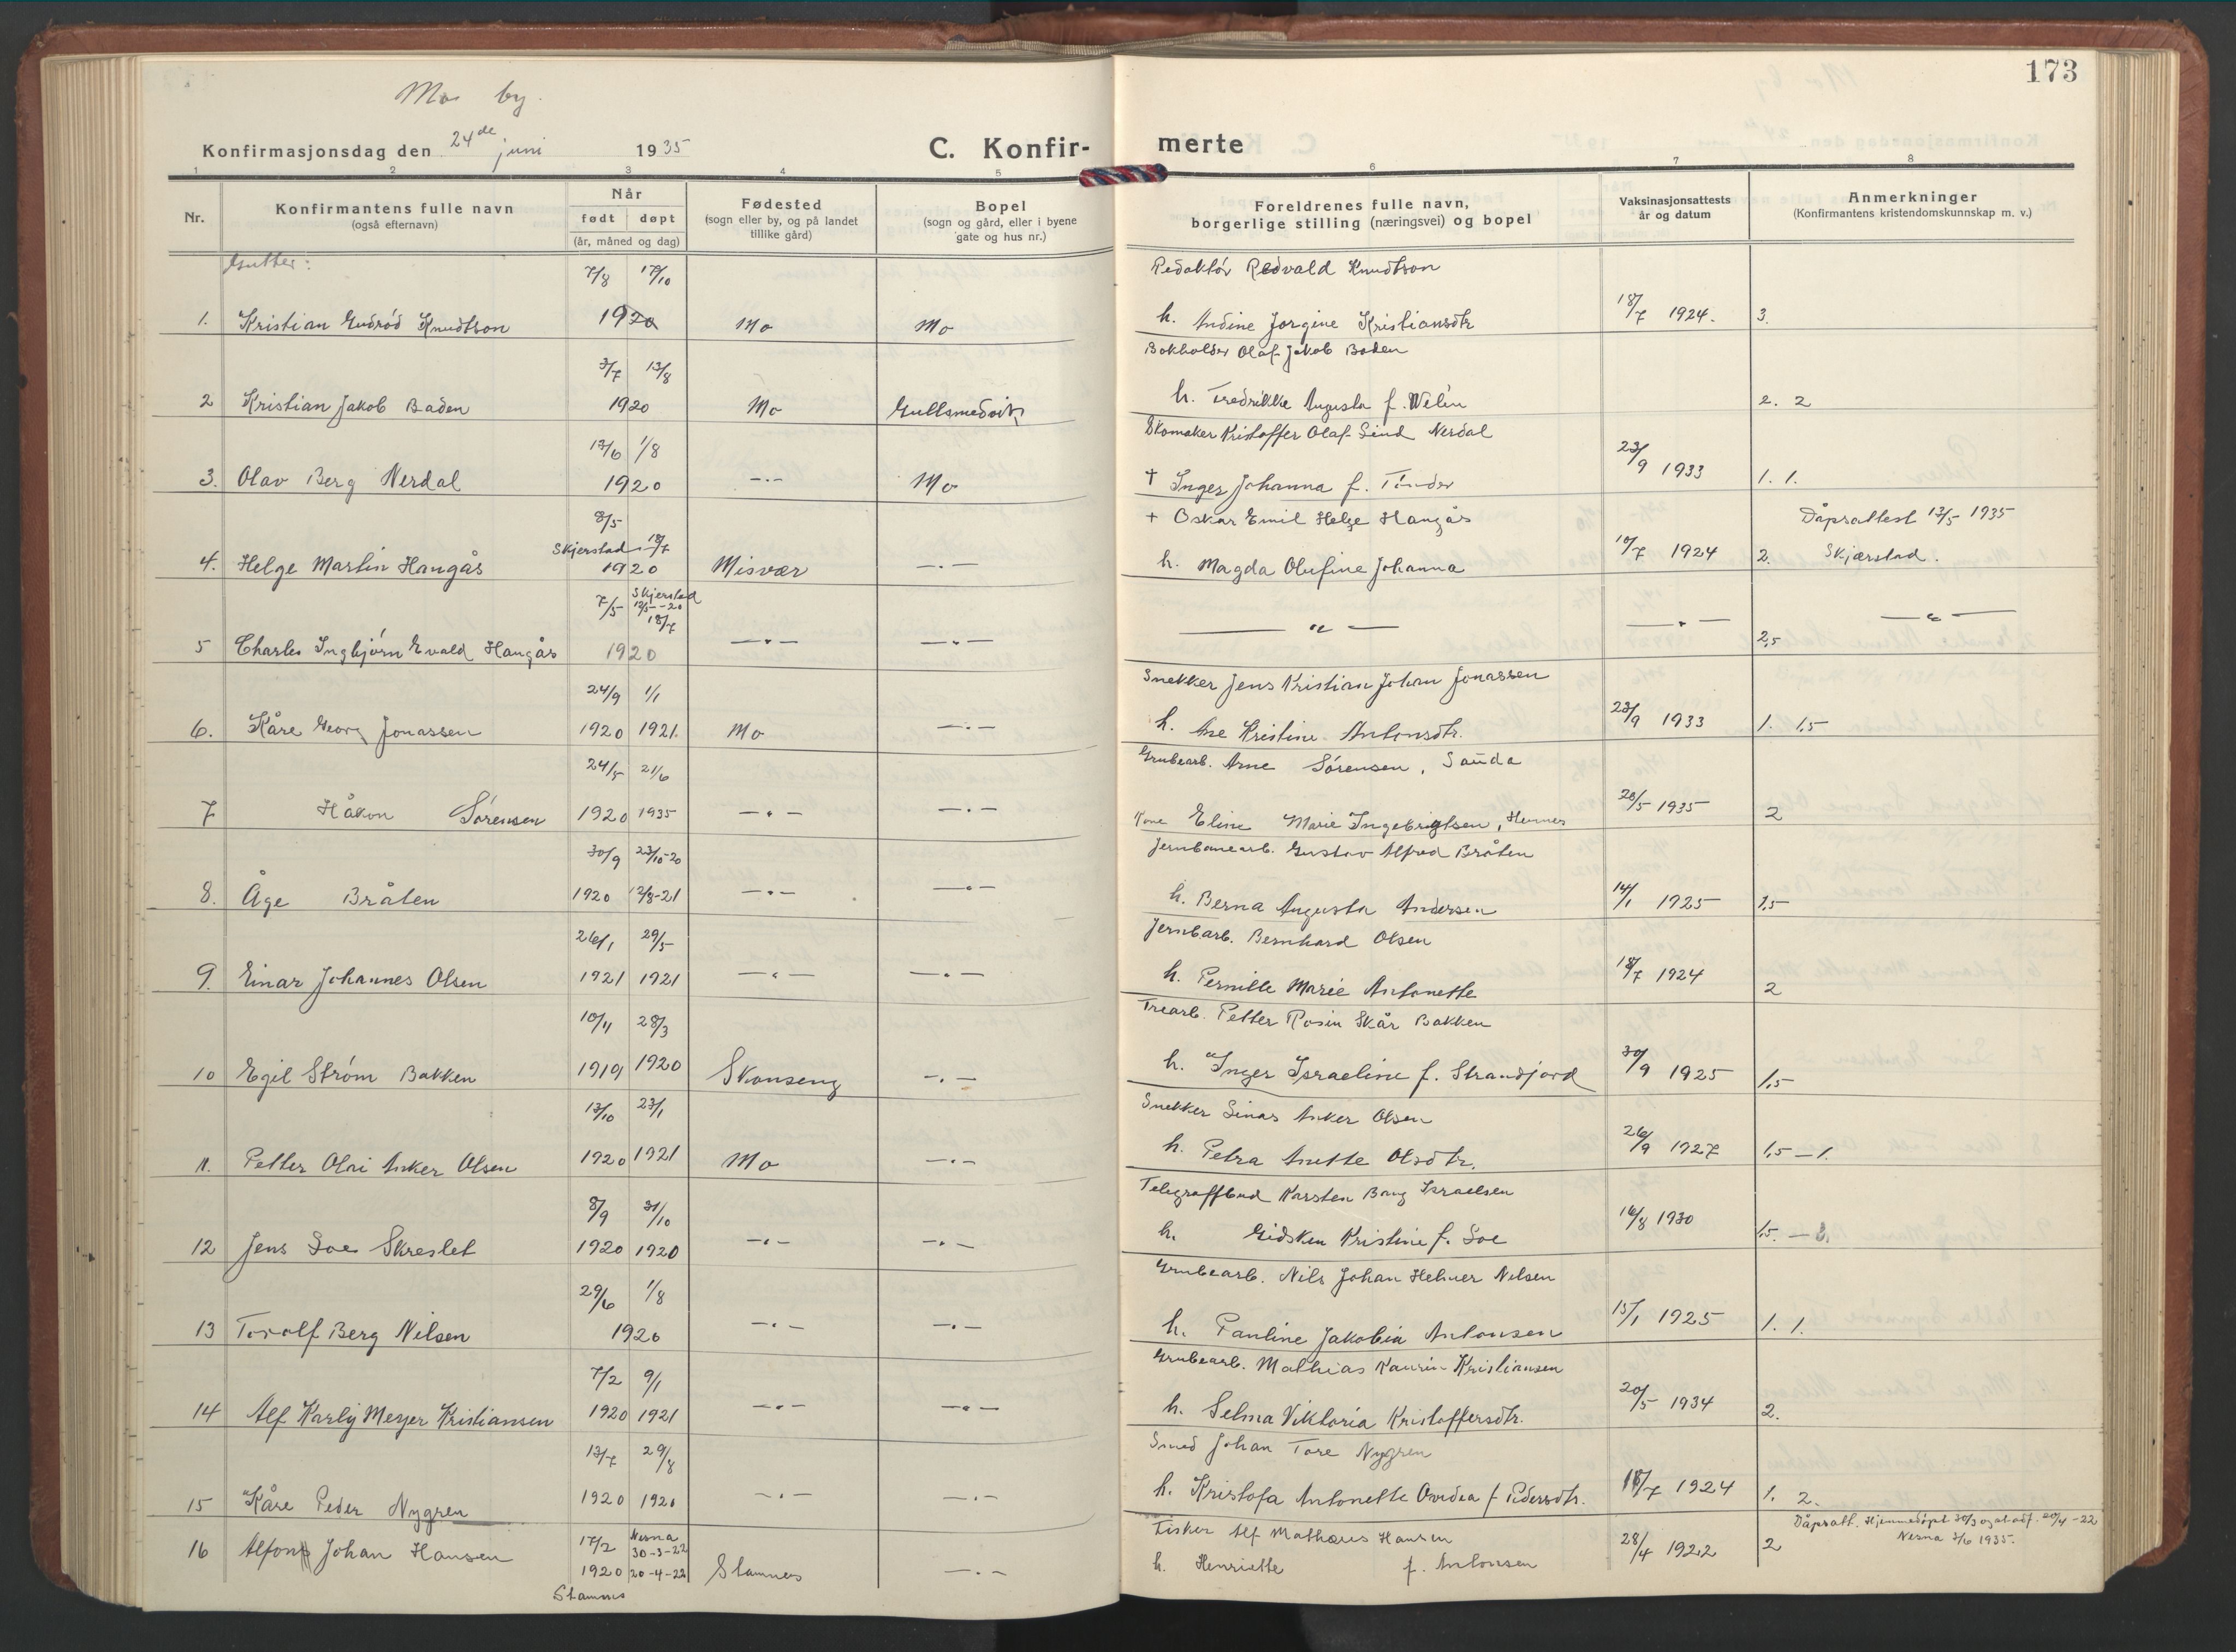 173
Mo by.
Konfirmasjonsdag den 24de juni 1935
C. Konfir-
merte
1 2 3 4 5 6 7 8
Nr.
Konfirmantens fulle navn
(også efternavn)
Når
født døpt
(år, måned og dag)
Fødested
(sogn eller by, og på landet
tillike gård)
Bopel
(sogn og gård, eller i byene
gate og hus nr.)
Foreldrenes fulle navn,
borgerlige stilling (næringsvei) og bopel
Vaksinasjonsattests
år og datum
Anmerkninger
(Konfirmantens kristendomskunnskap m. v.)
Gutter:
7/8 17/10 Redaktör Redvald Knudtson
1. Kristian Gudröd Knudtson 1920 Mo Mo h. Andine Jorgine Kristiansdtr 18/7 1924. 3.
3/7 13/8 Bokholder Olaf Jakob Baden
2 Kristian Jakob Baden 1920 Mo Gullsmedvik h. Fredrikke Augusta f. Welin 2. 2
13/6 1/8 Skomaker Kristoffer Olaf Sind Nerdal
3. Olav Berg Nerdal 1920 —·— Mo † Inger Johanna f. Tönder 23/9 1933 1. 1.
8/5 + Oskar Emil Helge Hangås Dåpsattest 13/5 1935
4. Helge Martin Hangås Skjerstad 18/7 1920 Misvær —·— h. Magda Olufine Johanna 18/7 1924 2. Skjærstad.
7/5 Skjerstad 12/5-20 18/7
5 Charles Ingbjörn Evald Hangås 1920 —·— —·— — " — —·— 2,5 — " —
24/9 1/1 Snekker Jens Kristian Johan Jonassen
6. Kåre Georg Jonassen 1920 1921. Mo —·— h. Ane Kristine Antonsdtr. 23/9 1933 1. 1,5
24/5 21/6 Grubearb. Arne Sörensen, Sauda
7 Håkon Sörensen 1920 1935 —·— —·— Kone Eline Marie Ingebrigtsen, Hemnes 20/5 1935 2
30/9 23/10-20 Jernbanearb. Gustav Alfred Bråten
8. Åge Bråten 1920 12/8-21 —·— —·— h. Berna Augusta Andersen 14/1 1925 1,5
26/1 29/5 Jernbarb. Bernhard Olsen
9. Einar Johannes Olsen 1921 1921 —·— —·— h. Pernille Marie Antonette 18/7 1924 2
10/11 28/3 Trearb. Petter Rosin Skår Bakken
10 Egil Ström Bakken 1919 1920 Skonseng —·— h. Inger Israeline f. Strandjord 30/9 1925 1,5
13/10 23/1 Snekker Sinas Anker Olsen
11. Petter Olai Anker Olsen 1920 1921 Mo —·— h. Petra Anette Olsdtr. 26/9 1927 1,5 — 1.
8/9 31/10 Telegrafbud Karsten Bang Israelsen
12 Jens Soe Skreslet 1920 1920 —·— —·— h. Gidsken Kristine f. Soe 16/8 1930 1,5. —
29/6 1/8 Grubearb. Nils Johan Helmer Nilsen
13 Torolf Berg Nilsen 1920 —·— —·— h. Pauline Jakobia Antonsen 15/1 1925 1. 1.
7/2 9/1 Grubearb. Mathias Kaurin Kristiansen
14 Alf Karly Meyer Kristiansen 1920 1921 —·— —·— h. Selma Viktoria Kristoffersdtr. 20/5 1934 2.
13/7 29/8 Smed Johan Tore Nygren
15 Kåre Peder Nygren 1920 1920 —·— —·— h. Kristofa Antonette Ovedea f Pedersdtr. 18/7 1924 1. 2.
17/2 Nesna 30-3-22 Fisker Alf Mathæus Hansen Dåpsatt. Hjemmedöpt 30/3 og stadf. 20/4-22
16 Alfons Johan Hansen 1920 20-4-22 Stamnes —·— h. Henriette f. Antonsen 28/4 1922 2 Nesna 3/6 1935.
Stamnes